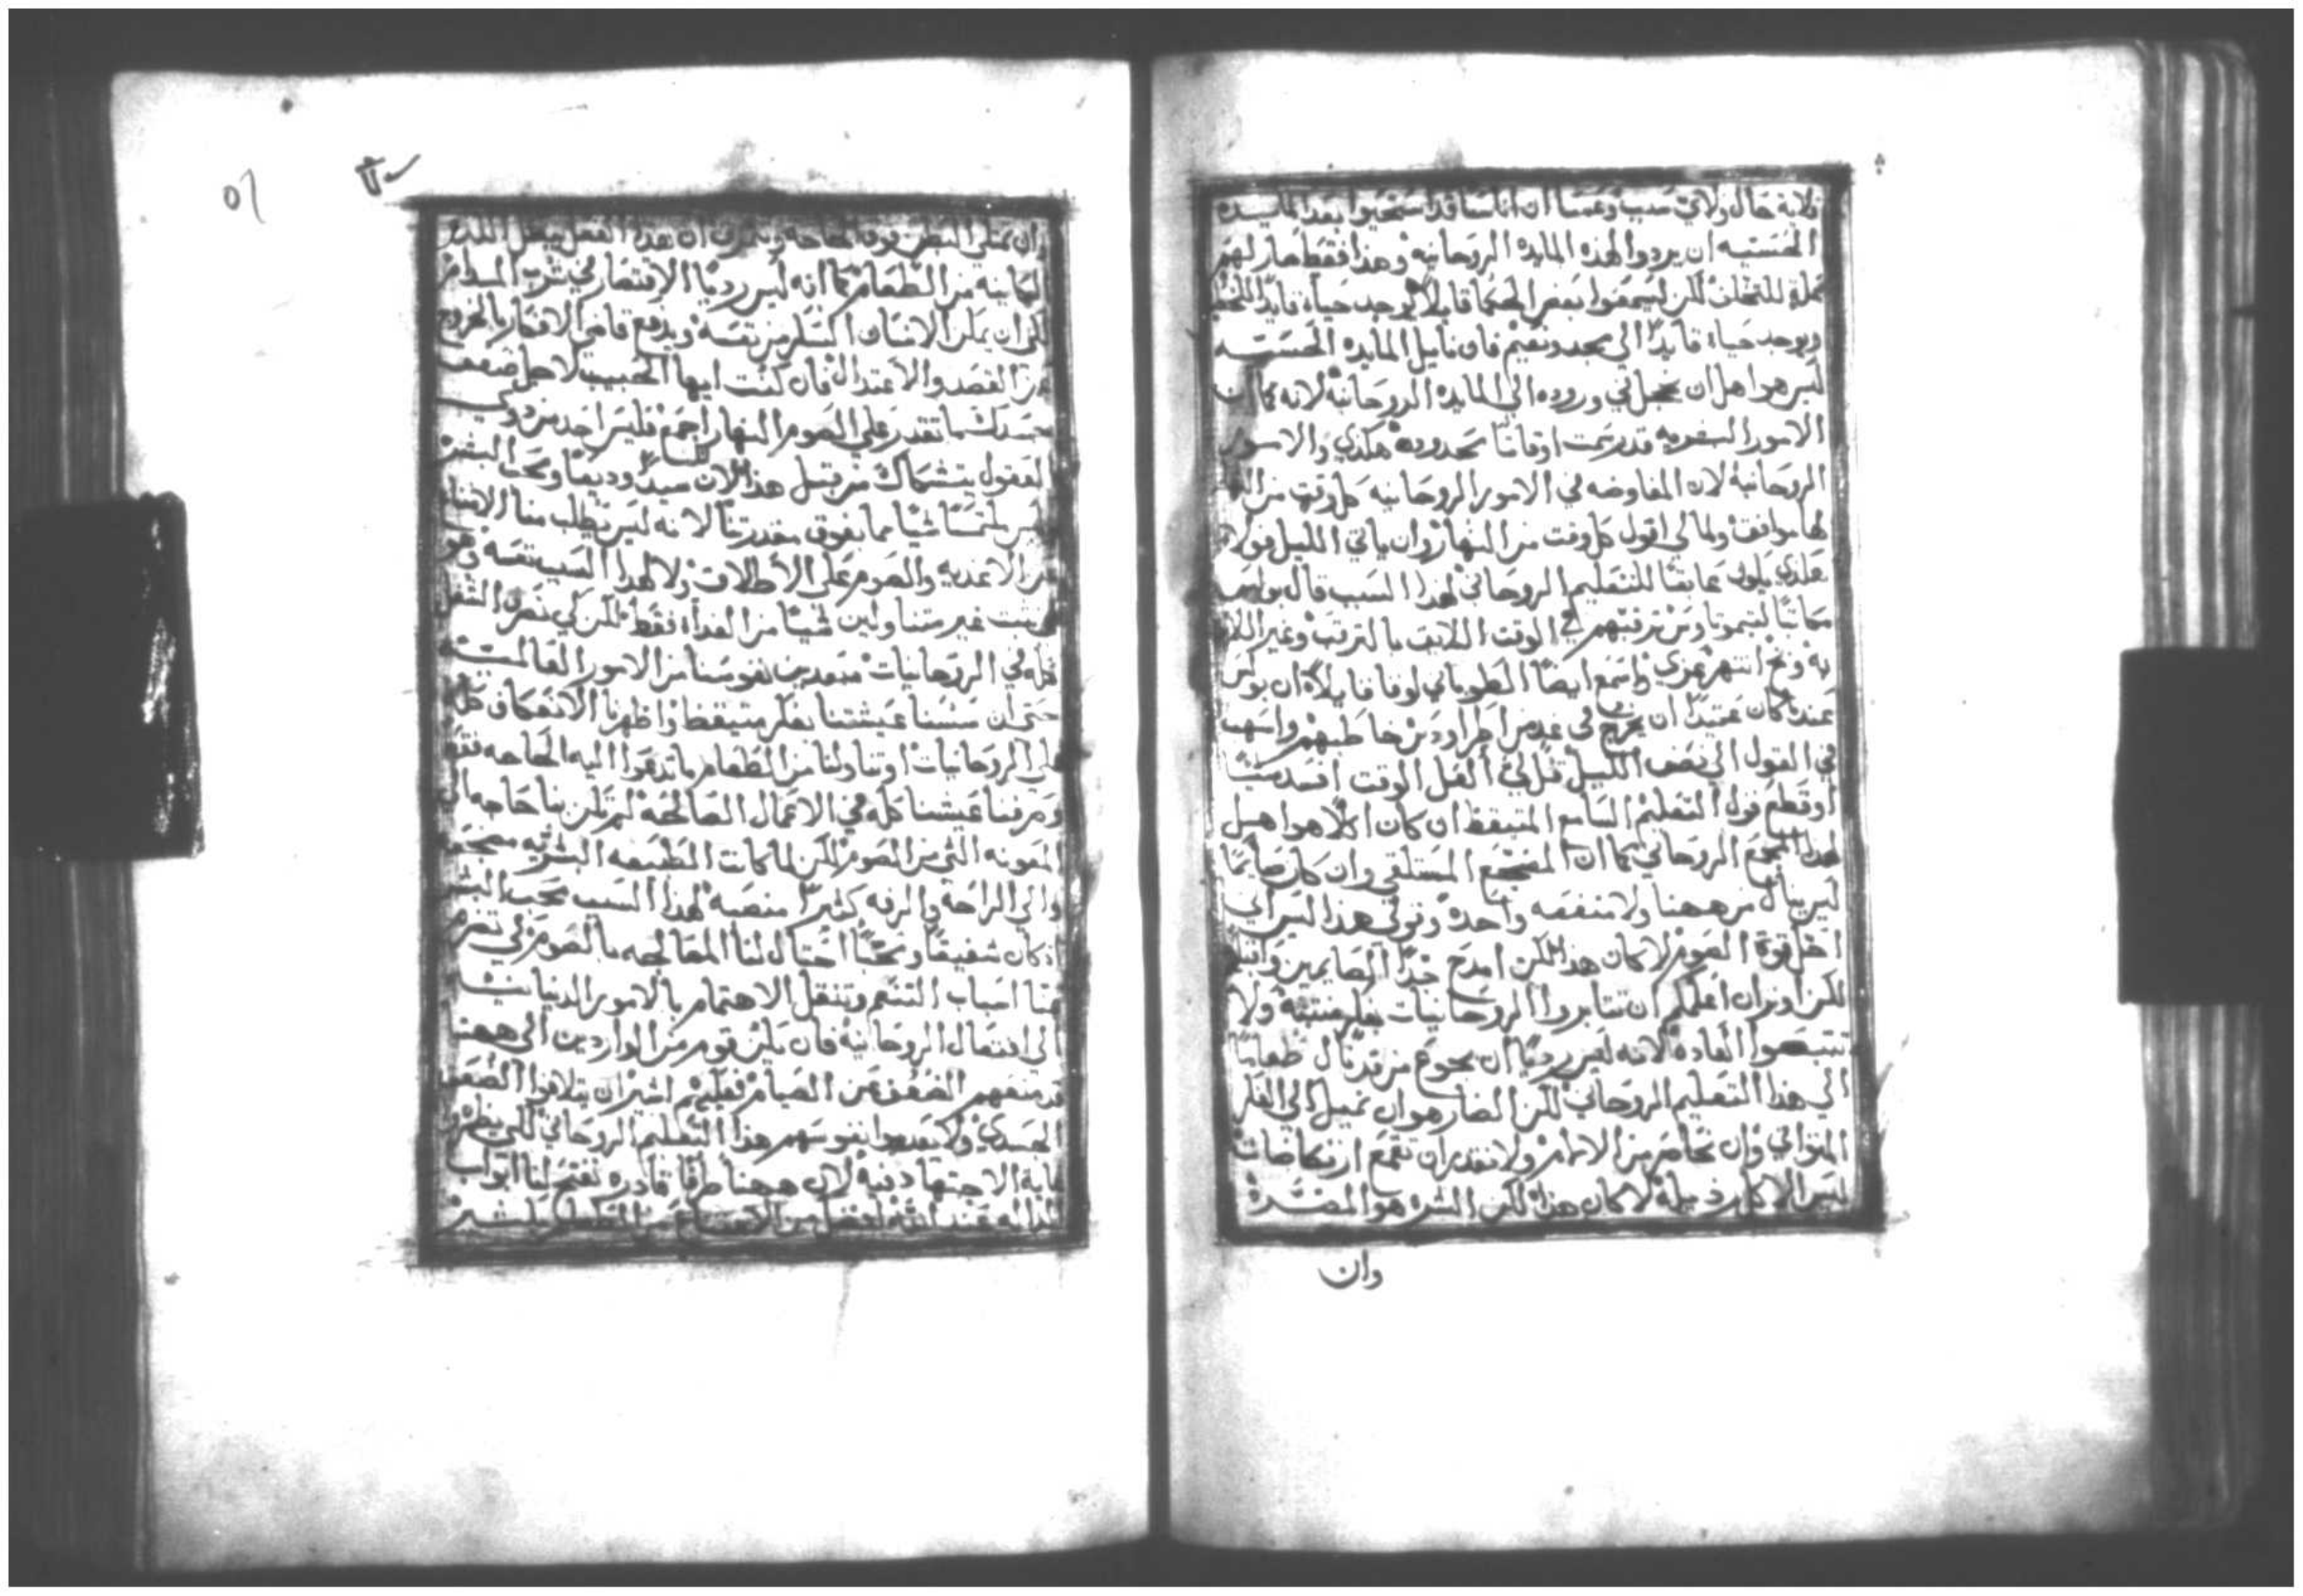 فلاية حال ولاي سبب وعسا ان اناسا قد استحيوا بعد المايده
الحسيه ان يردوا لهذه المايده الروحانيه وهذا فقط صار لهم
عله للتخلف لكن ليسمعوا بعض الحكما قايلا يوجد حياء قايدا للخطا
ويوجد حياء قايدا الي مجد ونعيم فان نايل المايده الحسيه
ليس هو اهل ان يخجل في وروده الي المايده الروحانيه لانه كما ان
الامور البشريه قد رسمت اوقاتا محدوده هكذي والامور
الروحانية لان المفاوضه في الامور الروحانيه كل وقت من
لها موافق ولما لي اقول كل وقت من النهار وان ياتي الليل فولا
هكذي يكون عايقا للتعليم الروحاني لهذا السبب قال بولس
مكاتبا لتيموثاوس ترقبهم في الوقت اللايق بالترقب وغير اللايق
به وبخ انتهر عزي واسمع ايضا الطوباني لوقا قايلا ان بولس
عندما كان عتيدا ان يخرج في غد من اطراودس خاطبهم واسهب
في القول الي نصف الليل قل لي العل الوقت افسد شيا
او قطع قول التعليم السامع المتيقظ ان كان اكلا هو اهل
لهذا المجمع الروحاني كما ان المضجع المستلقي وان كان صايما
ليس ينال من ههنا ولا منفعه واحده وقولي هذا ليس اني
احل قوة الصوم لا كان هذا لكن امدح جدا الصايمين واقبل
لكن اوثر ان اعلمكم ان تثابروا الروحانيات بفكر منتبه ولا
تتبعوا العاده لانه ليس رديا ان يجوع من قد نال طعاما
الي هذا التعليم الروحاني لكن الضار هو ان نميل الي الفكر
المتواني وان نخاصم من الالام ولا نقدر ان نقمع ارتكاضات
ليس الاكل رذيله لا كان هذا لكن الشره هو المضر
وان
٥٦
ان يمتلي البطن فوق الحاجه ان هذا الفعل يبطل اللذه
الكاينة من الطعام كما انه ليس رديا الاقتصار في شرب المدام
لكن ان يمكن الانسان السكر من نفسه ويدفع قاضي الافكار بالخروج
عن القصد والاعتدال فان كنت ايها الحبيب لاجل ضعف
جسدك لما تقدر علي الصوم النهار اجمع فليس احد من ذوي
العقول يتشكاك من قبل هذا لان لنا سيدا وديعا ومحب البشر
ليس ملتمسا شيا مما يفوق مقدرتنا لانه ليس يطلب منا الامتناع
من الاغديه والصوم علي الاطلاق ولا لهذا السبب نفسه وهو
نثبت غير متناولين شيا من الغداء فقط لكن لكي نصرف الشغل
كله في الروحانيات مبعدين نفوسنا من الامور العالميه
حتي ان سسنا عيشتنا بفكر متيقظ واظهرنا الانعكاف كله
علي الروحانيات وتناولنا من الطعام ما تدعوا اليه الحاجه فقط
وصرفنا عيشتنا كله في الاعمال الصالحه لم تكن بنا حاجه الي
المعونه التي من الصوم لكن لما كانت الطبيعه البشريه
والي الراحة والرفه كثيرا منصبه لهذا السبب محب البشر
اذ كان شفيقا ومحبا احتال لنا المعالجه بالصوم لكي تنصرم
عنا اسباب التنعم وتنتقل الاهتمام بالامور الدنياينه
الي افتعال الروحانيه فان يكن قوم من الواردين الي ههنا
قد منعهم الضعف عن الصيام فعليهم اشير ان يتلافوا الضعف
الجسدي ولا يعدموا نفوسهم هذا التعليم الروحاني لكن يظهروا
غاية الاجتهاد فيه لان ههنا طرقا قادره تفتح لنا ابواب
الداله عند الله افضل من الامتناع عن